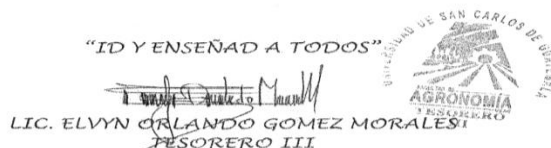 "ID Y ENSEÑAD A TODOS"
LIC. ELVYN ORLANDO GOMEZ MORALES
TESORERO III
UNIVERSIDAD DE SAN CARLOS DE GUATEMALA
AGRONOMÍA
TESORERO